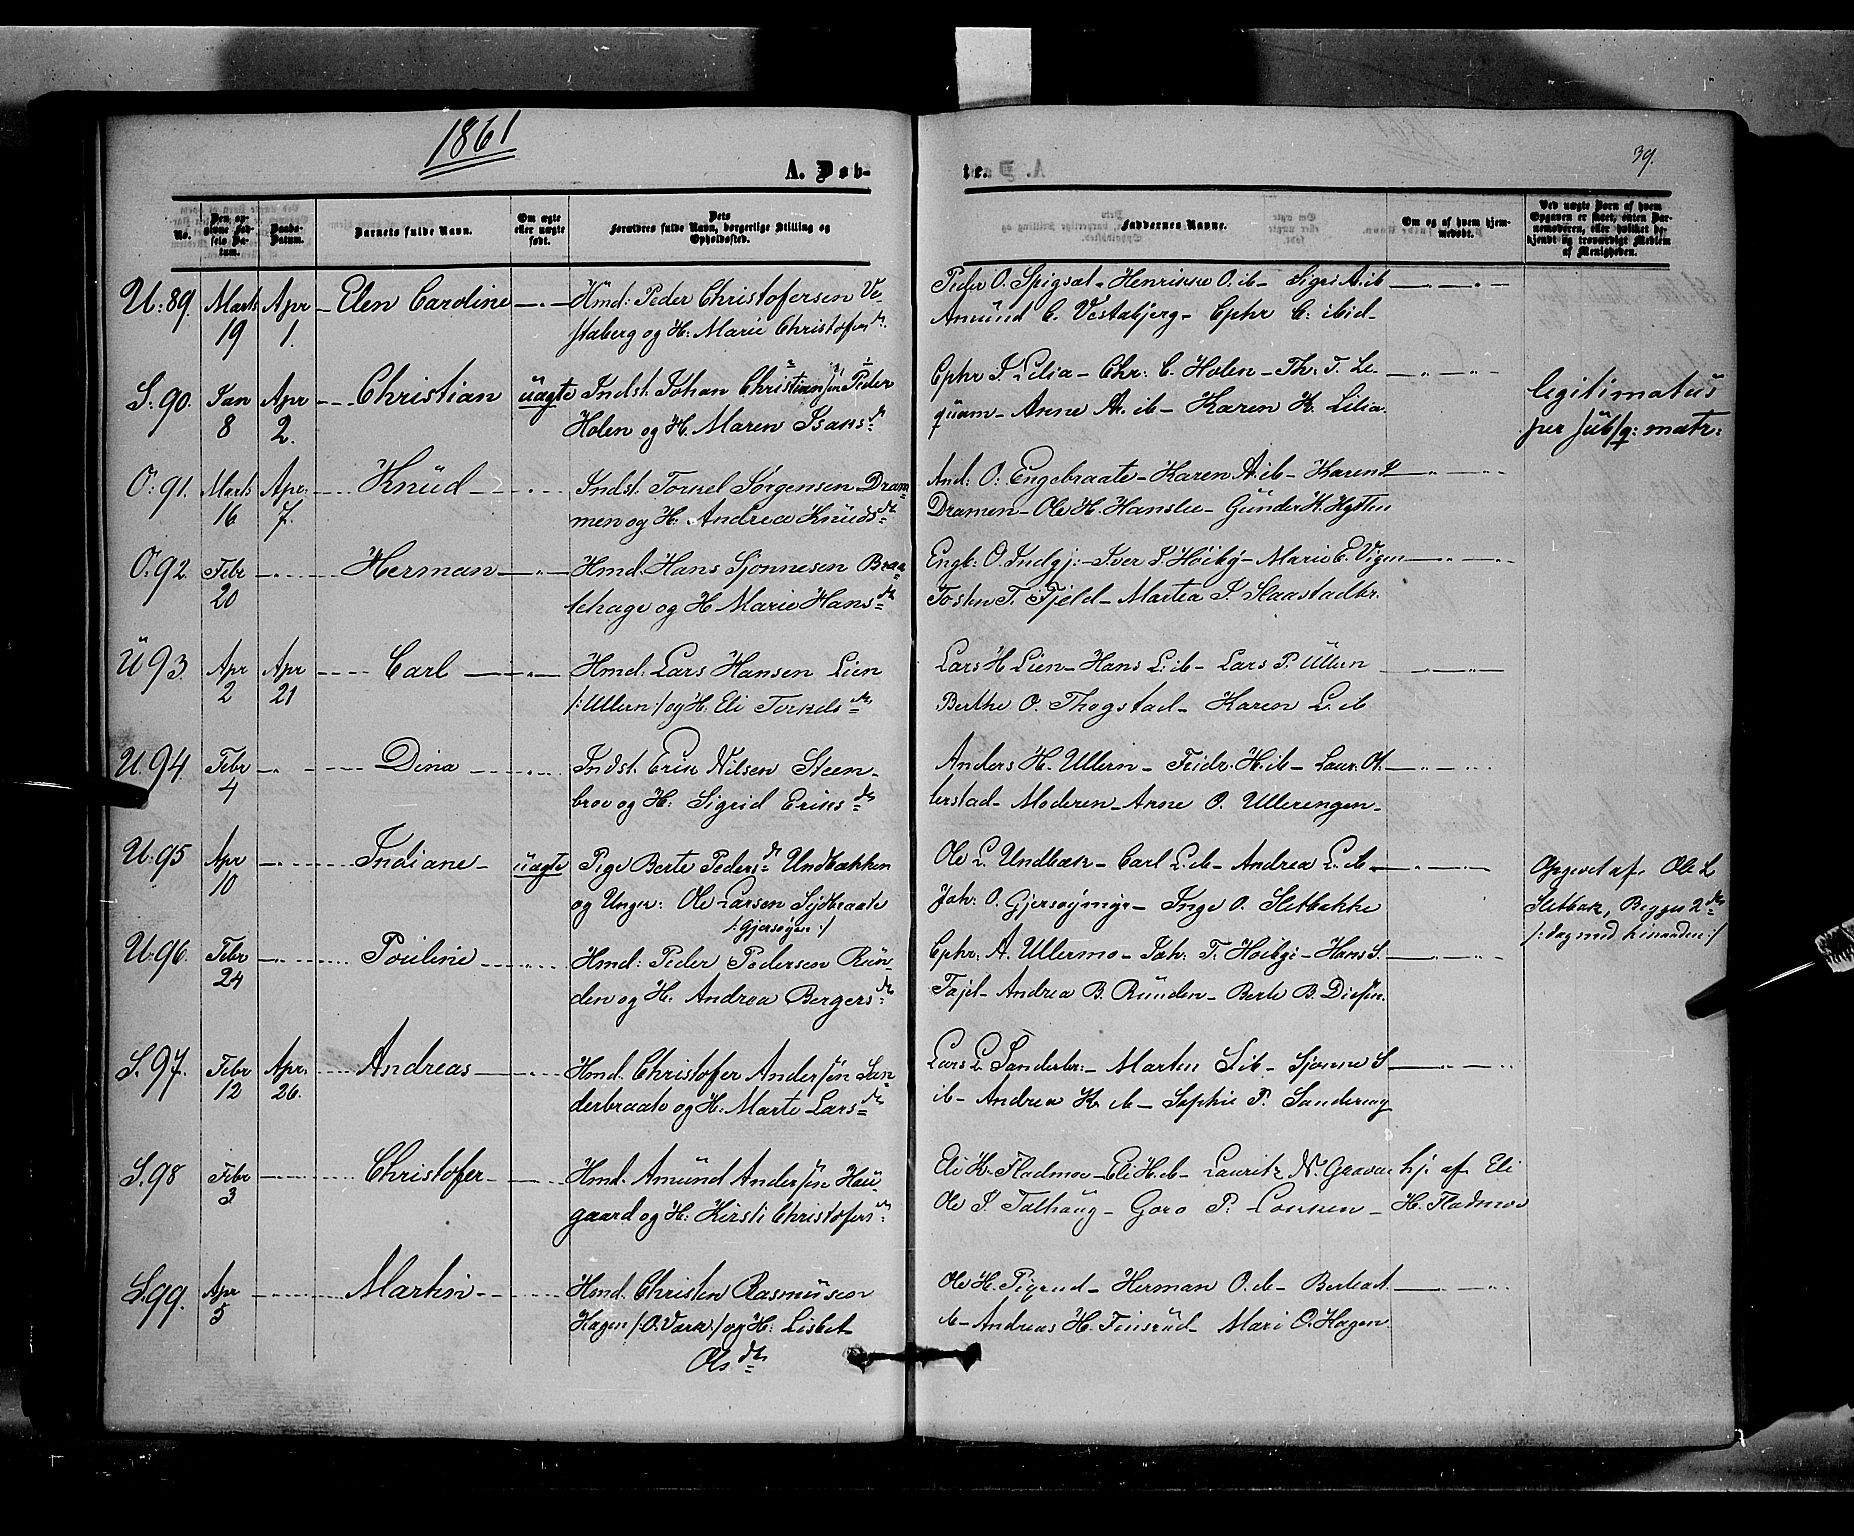 1861
39.
A. Døb-
te.
No.
Den op-
givne Fød-
sels Da-
tum.
Daabs-
Datum.
Barnets fulde Navn.
Om ægte
eller uægte
født.
Dets
Forældres fulde Navn, borgerlige Stilling og
Opholdssted.
Faddernes Navne.
Om og af hvem hjem-
medøbt.
Ved uægte Børn af hvem
Opgaven er skeet, enten Bar-
nemoderen, eller hvilket be-
kjendt og troværdigt Medlem
af Menigheden.
U: 89. Marts 19 Apr 1. Elen Caroline Hmd: Peder Christofersen Ve-
staberg og H: Marie Christofersd.
Peder O. Spigset - Henrikke O. ib - Sigri A. ib
Amund C. Vestabjerg - Cphr C. ibid -
S: 90. Jan 8 Apr 2. Christian uægte Indst. Johan Christiansen Peder
Holen og H. Maren Isaksd
Cphr J. Lilia - Chr: C. Holen - Th: T. Le-
quam - Anne At. ib - Karen K. Lilia.
legitimatus
per subsq: matr:
O: 91. Marts 16 Apr: 7. Knud Indst. Torkel Jørgensen Dram-
men og H: Andrea Knudsd
And: O. Engebraate - Karen A. ib - Karen
Dramen - Ole H. Hanslee - Gunder K. Hytten
O: 92. Febr 20 Herman Hmd. Hans Sjønnesen Braa-
tehage og H. Marie Hansd
Engb: O. Indgj: - Iver P. Høiby - Marie E. Vigen
Tosten T. Fjeld - Martea J. Slaastadbr.
U 93. Apr 2 Apr 21 Carl Hmd. Lars Hansen Lien
/: Ullern :/ og H. Eli Torkelsd
Lars H. Lien - Hans L. ib - Lars P. Ullern
Berthe O. Thogstad - Karen L. ib
U. 94. Febr 4 Dina Indst. Erik Nilsen Steen-
broe og H: Sigrid Eriksd
Anders H. Ullern - Fridr. H. ib - Laur. Ot-
terstad - Moderen - Arne O. Ullerengen -
U: 95 Apr 10 Indiane uægte Pige Berte Pedersd Undbakken
og Ungk: Ole Larsen Sydbraate
/: Gjersøyen :/
Ole L. Undbak - Carl L. ib - Andrea L. ib
Joh: O. Gjersøymyr - Inge O. Sletbakke
Opgivet af Ole L
Sletbak, Begges 2den
U: 96. Febr 24 Pouline Hmd: Peder Pedersen Run-
den og H. Andrea Bergersd
Cphr: A. Ullermo - Joh: T. Høibye - Hans S.
Tajet - Andrea B. Runden - Berte B. Diesen.
S. 97. Febr 12 Apr. 26. Andreas Hmd. Christofer Andersen San-
derbraate og H: Marte Larsd
Lars L. Sanderbr: - Marten S. ib - Sjønne S
ib - Andrea K. ib - Sophie P. Sandereng
S. 98 Febr 3 Christofer Hmd. Amund Andersen Hau-
gaard og H: Kirsti Christofersd.
Eli H. Fladmoe - Eli H. ib - Lauritz N. Graven hj. af Eli
Ole J. Talhaug - Goro P. - H. Fladmoe
S. 99. Apr 5 Martin Hmd. Christen Rasmussen
Hagen /: O. Vara :/ og H: Lisbet
Olsd
Ole H. Pigrud - Herman O. ib - Berte A.
ib - Andreas H. Finsrud - Mari O. Hagen.